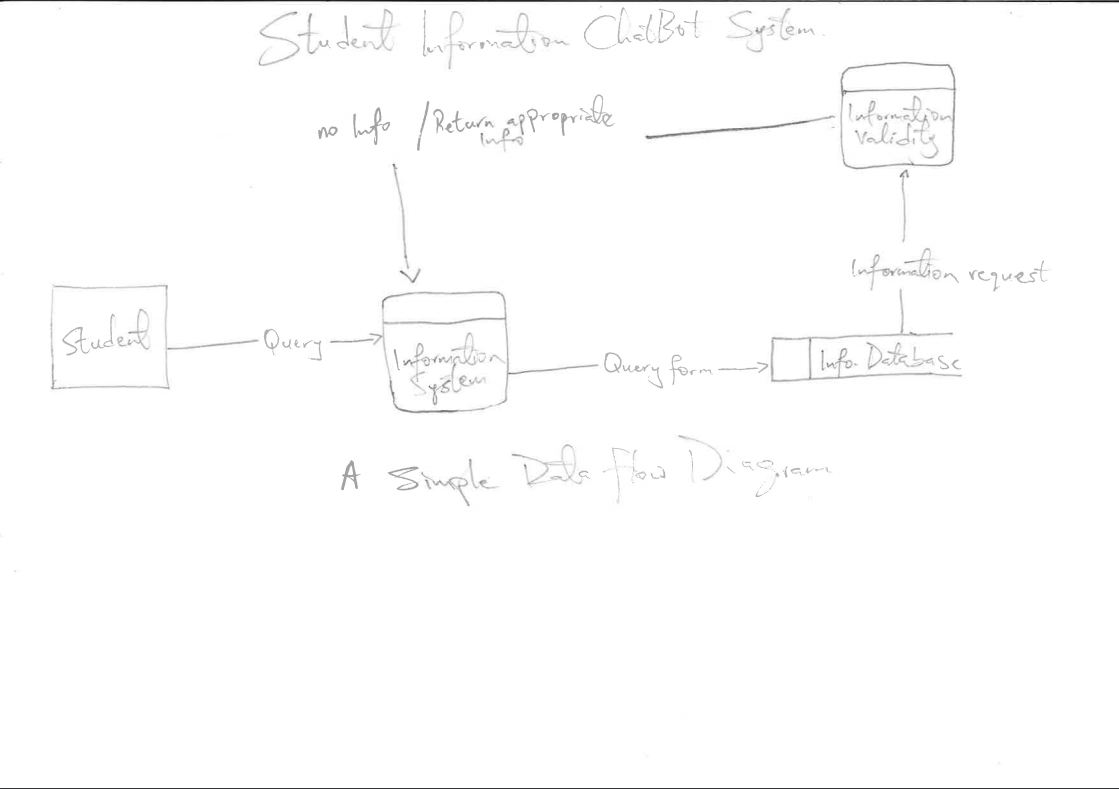 Student Information ChatBot System.
no Info / Return appropriate
Info
Information
Validity
Information request
Student
Query
Information
System
Query form
Info. Database
A Simple Data flow Diagram